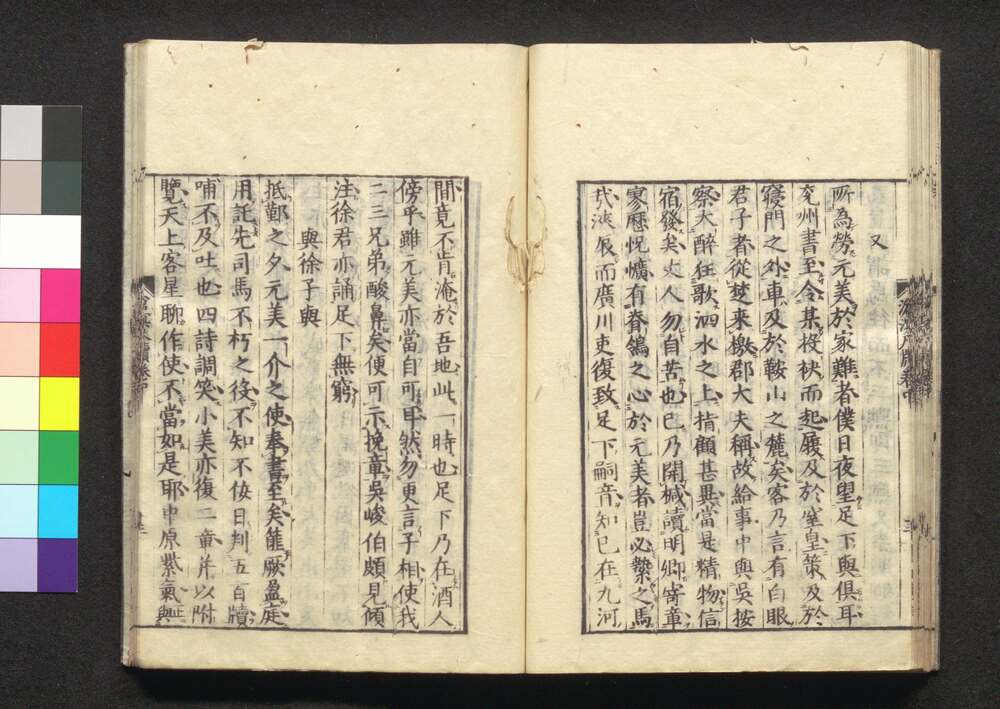 又
所為勞元美於家難者僕日夜望足下與俱耳
兗州書至令某投袂而起屨及於窒皇策及於
寢門之外車及於鞍山之麓矣客乃言有白眼
君子者從楚來檄郡大夫稱故給事中與吳按
察大醉狂歌泗水之上指顧甚異當是精物信
宿發矣丈人勿自苦也已乃開械讀明卿寄章
寥歷悅懭有脊鴒之心於元美者豈必縶之馬
弐浹辰而廣川吏復致足下嗣音知已在九河
間竟不肯淹於吾地此一時也足下乃在酒人
傍乎雖元美亦當自可甲然勿更言子相使我
二三兄弟酸鼻矣便可示挽章吳峻伯頗見傾
注徐君亦誦足下無窮
與徐子與
抵鄴之夕元美一介之使奉書至矣篚厥盈庭
用託先司馬不朽之役不知不佞日判五百牘
哺不及吐也四詩調笑小美亦復二章并以附
覽天上客星聊作使不當如是耶中原紫氣與